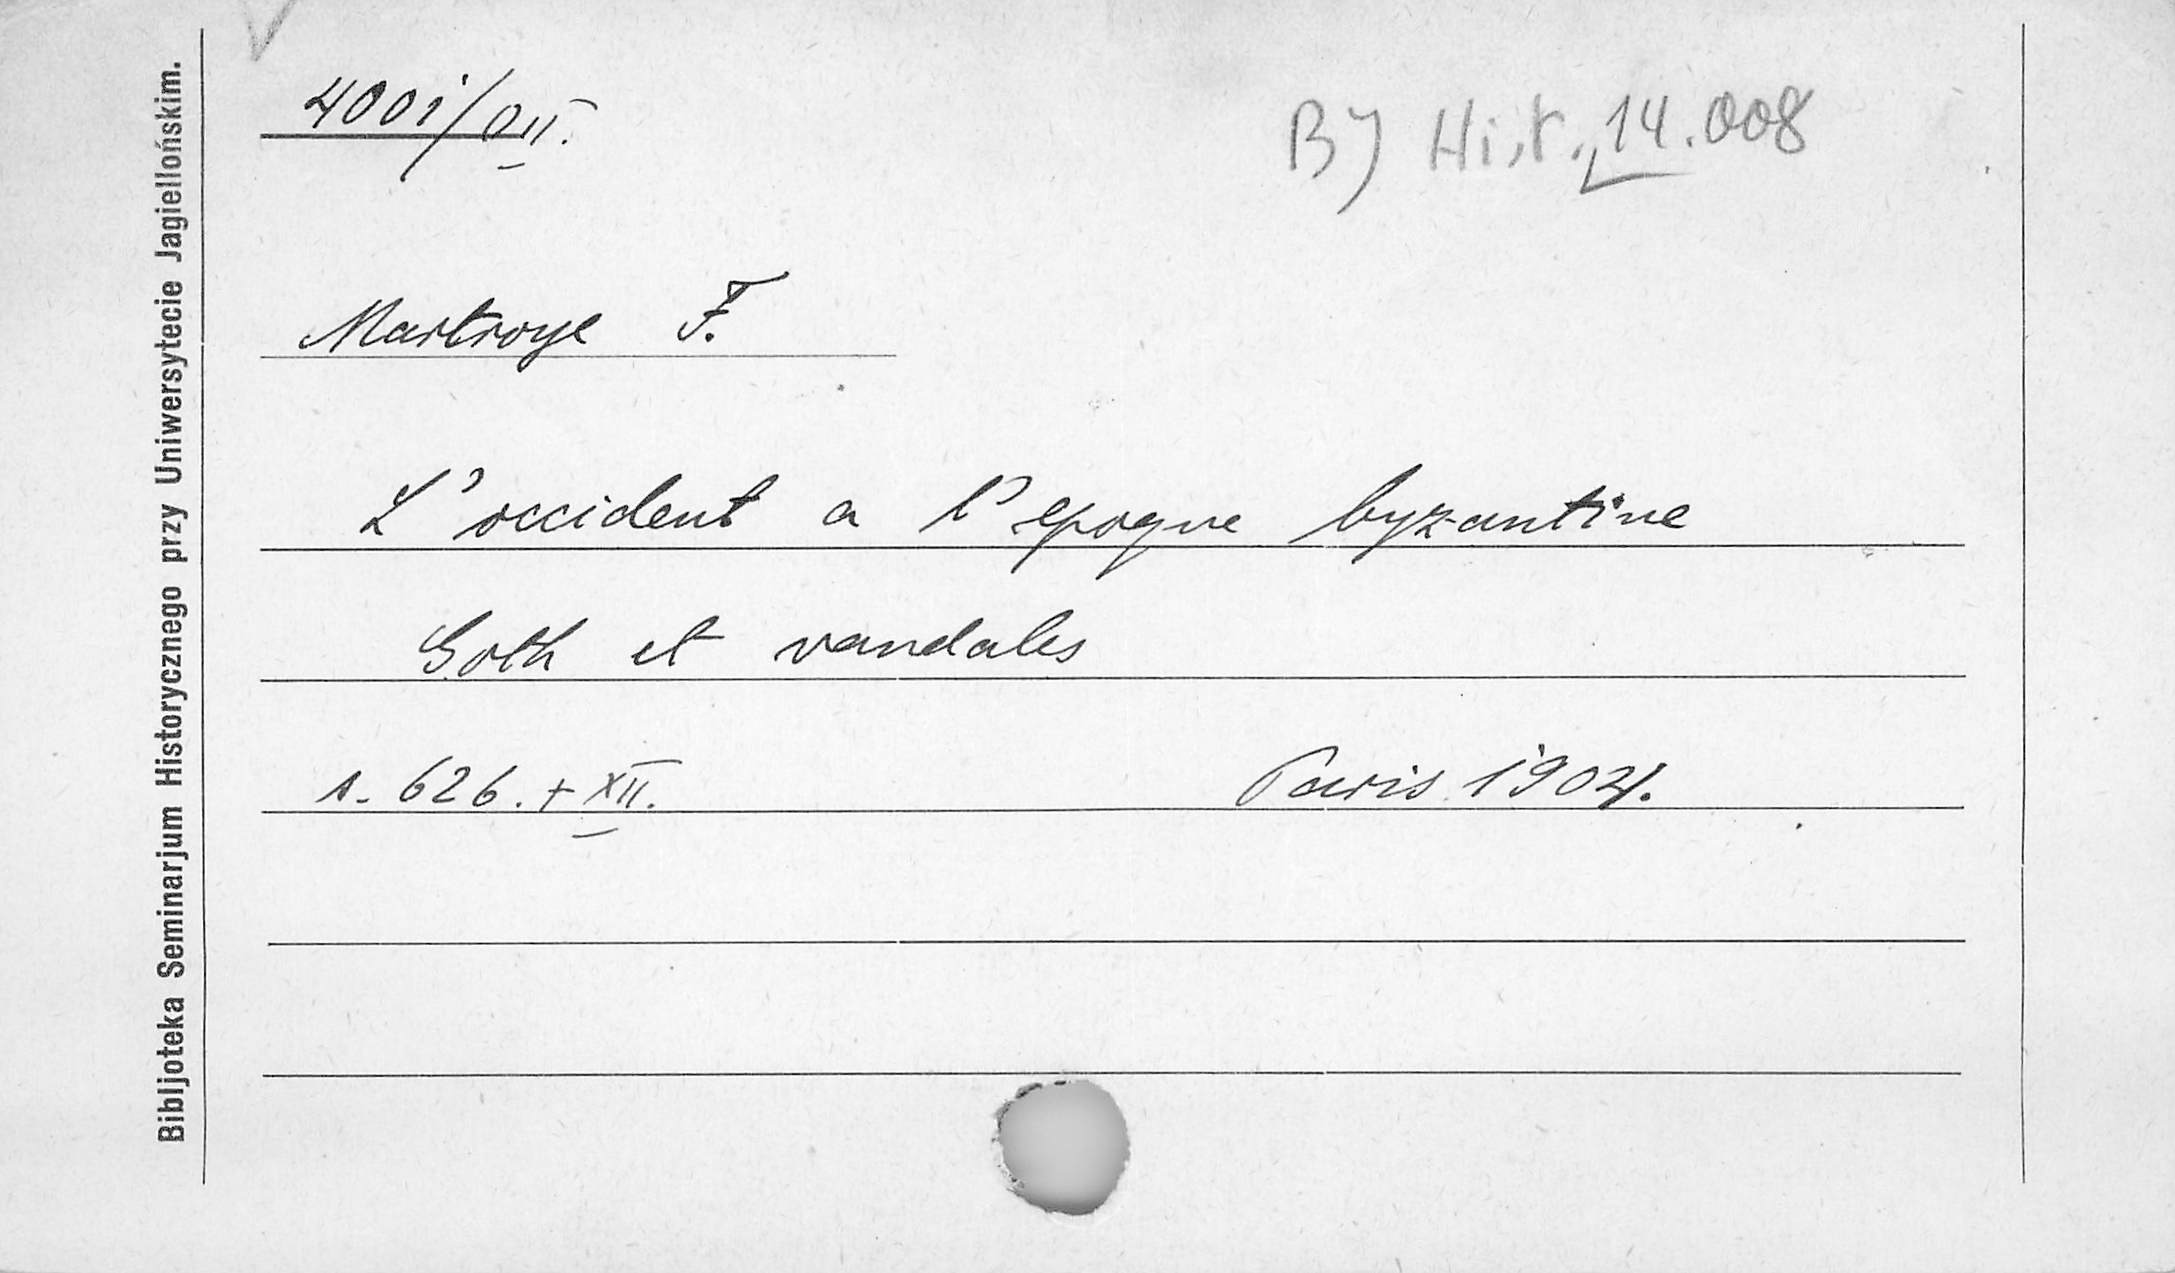 4001/OII.
BJ Hist. 14.008
Martroye F.
L'occident a l'epoque byzantine
Goth et vandales
s. 626. + XII. Paris 1904.
Bibljoteka Seminarjum Historycznego przy Uniwersytecie Jagiellońskim.